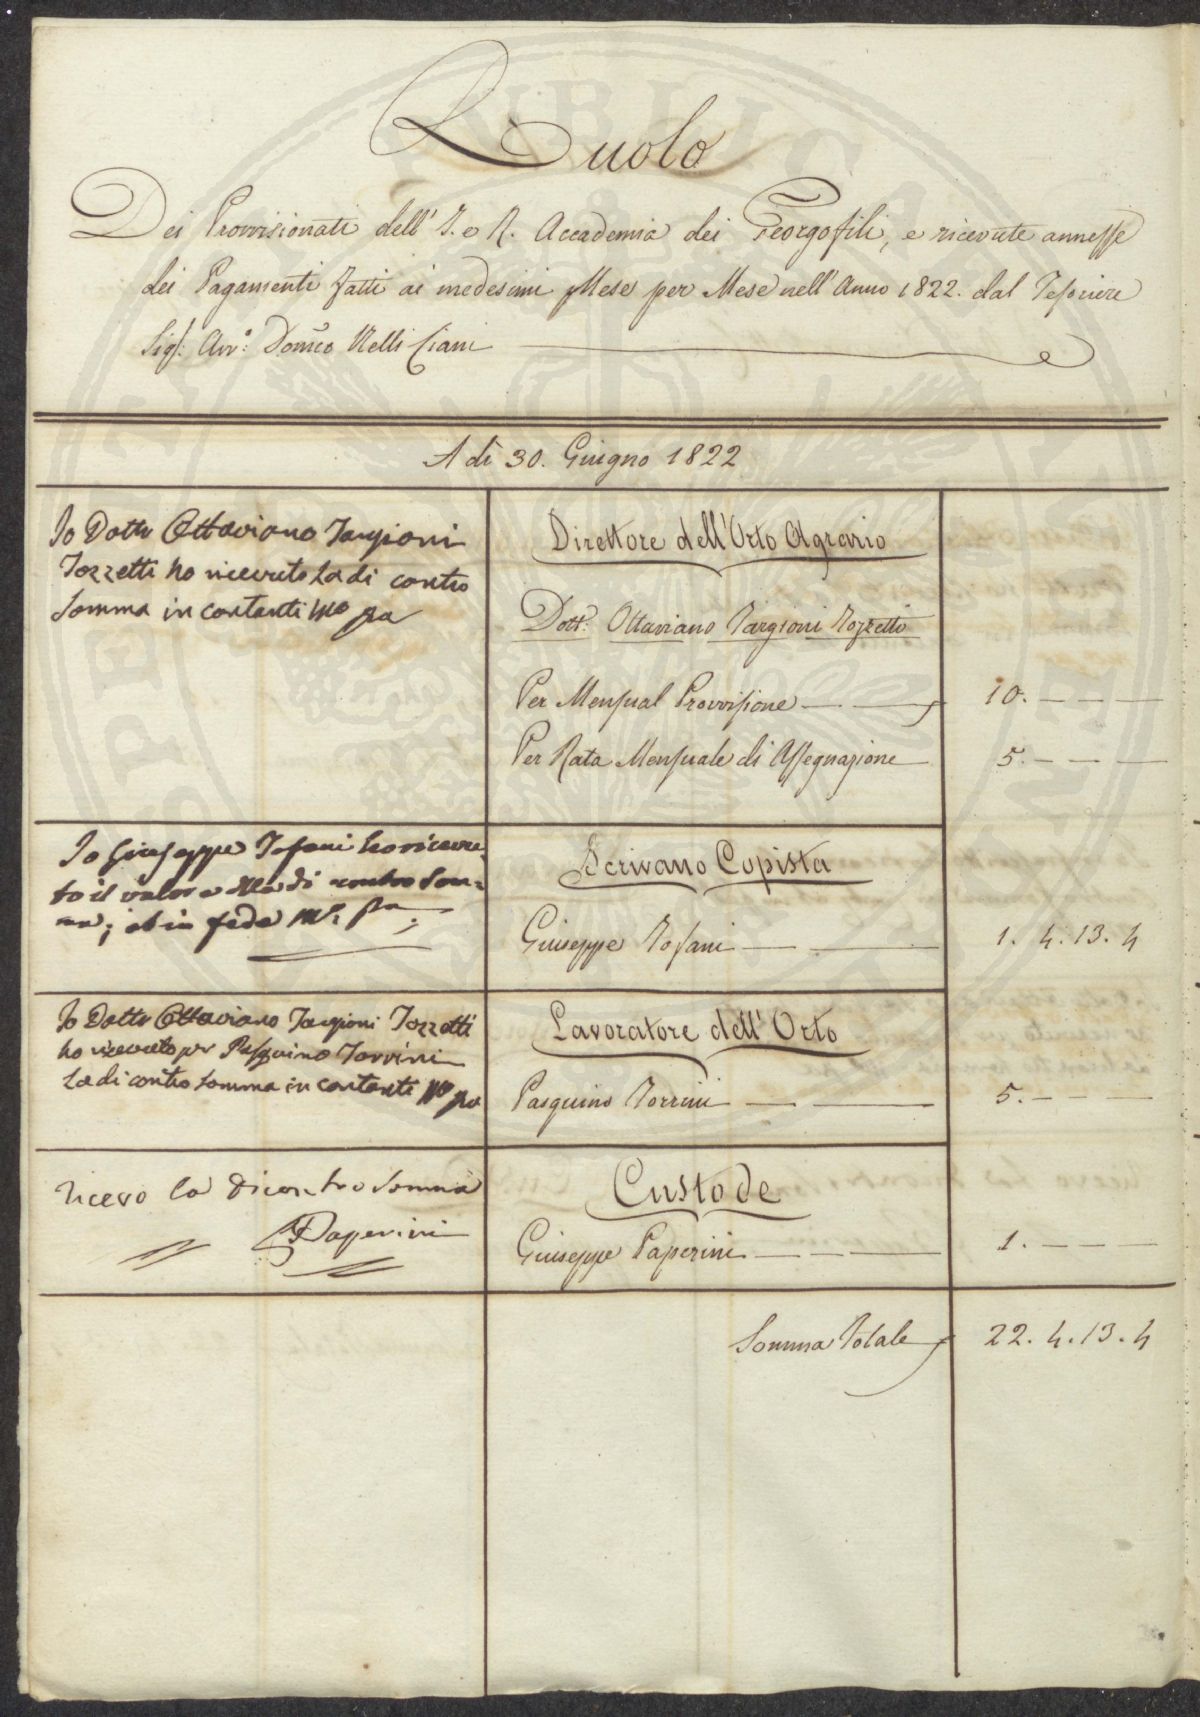 Ruolo
Dei Provvisionati dell' I. e R. Accademia dei Georgofili, e ricevute annesse
dei Pagamenti fatti ai medesimi Mese per Mese nell' Anno 1822. dal Tesoriere
Sig.: Avv.º Domco Nelli Ciani
A dì 30. Giugno 1822
Io Dottr Ottaviano Targioni
Tozzetti ho ricevuto la di contro
Somma in contanti mo pa
Direttore dell' Orto Agrario
Dott. Ottaviano Targioni Tozzetti
Per Mensual Provvisione — — 10. — — —
Per Rata Mensuale di Assegnazione — 5. — — —
Io Giuseppe Tofani ho ricevu-
to il valore della di contro Som-
ma; ed in fede mo pa
Scrivano Copista
Giuseppe Tofani — — 1. 4. 13. 4
Io Dottr Ottaviano Targioni Tozzetti
ho ricevuto per Pasquino Torrini
La di contro Somma in contanti mo pa
Lavoratore dell' Orto
Pasquino Torrini — — 5. — — —
ricevo la dicontro Somma
G Paperini
Custode
Giuseppe Paperini — — — 1. — — —
Somma Totale 22. 4. 13. 4